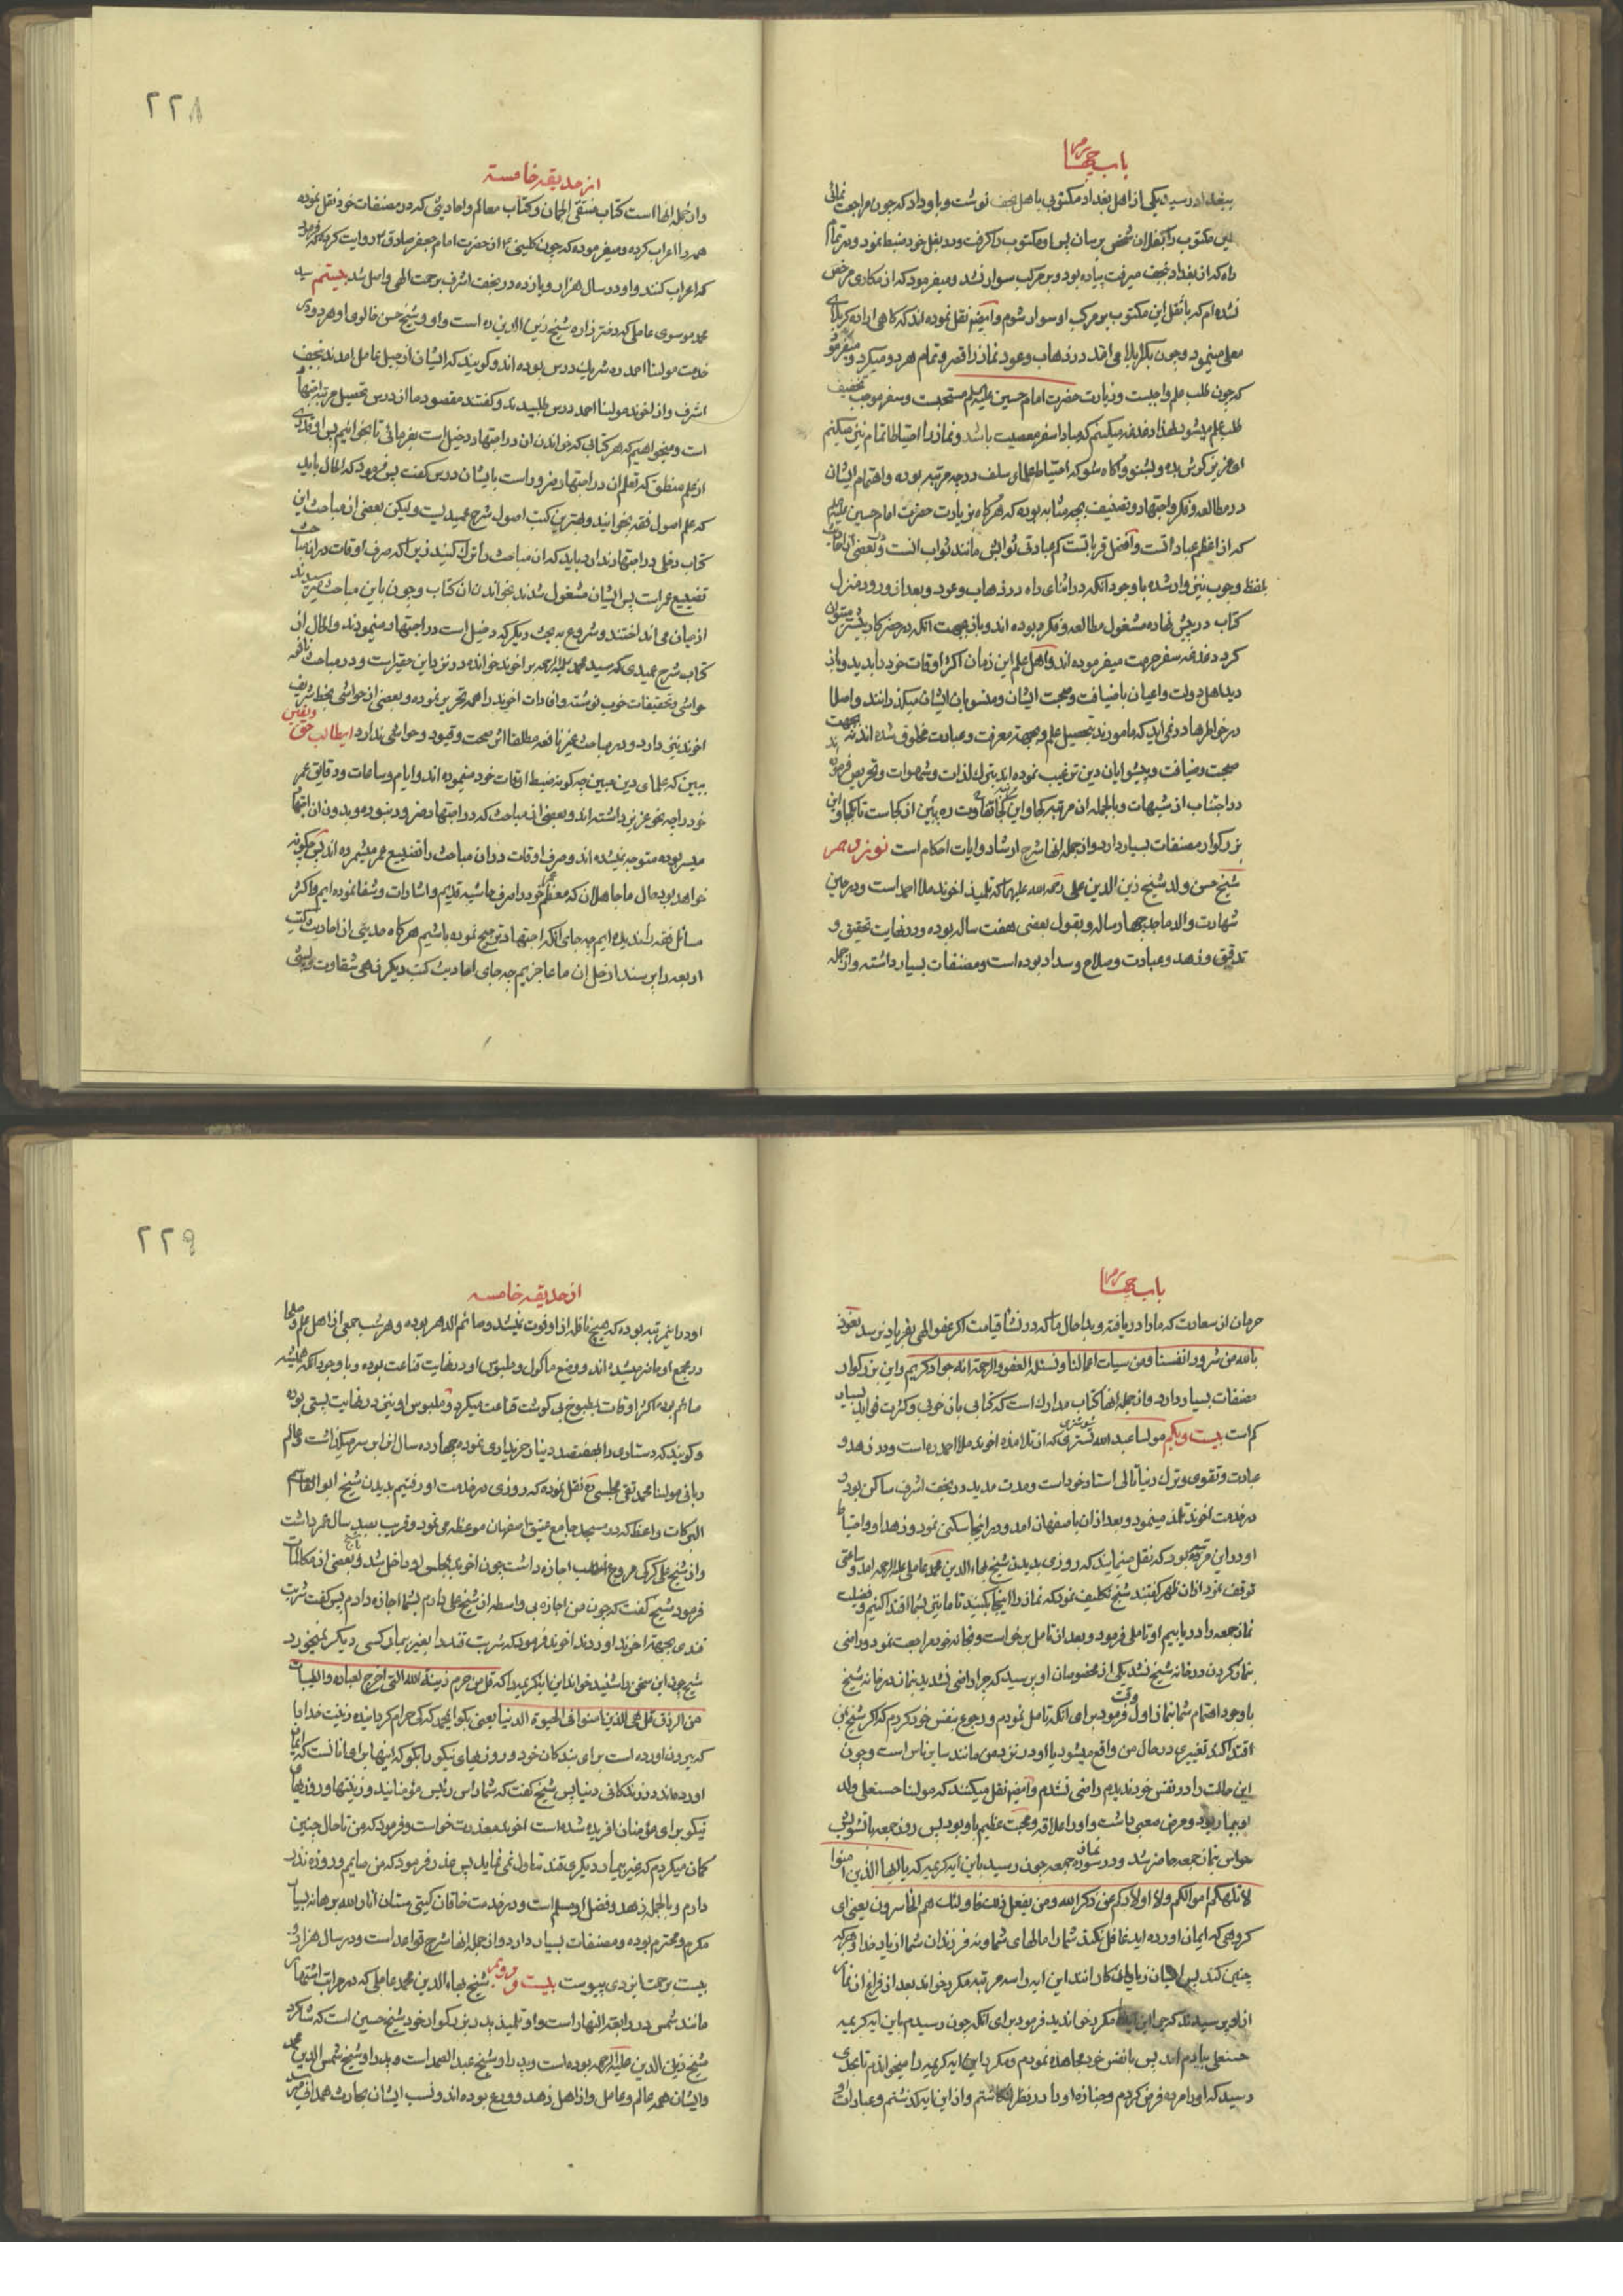 باب چهارم
ببغداد رسید یکی از اهل بغداد مکتوبی باهل نجف نوشت و باو داد که چون مراجعت نمائی
این مکتوب را بفلان شخص برسان پس او مکتوب را کرفت و در بغل خود ضبط نمود و در تمام
راه که از بغداد بنجف میرفت پیاده بود و بر مرکب سوار نشد و میفرمود که از مکاری مرخص
نشده‌ام که با نقل این مکتوب بر مرکب او سوار شوم و ایضا نقل نموده‌اند که کاهی اراده کربلای
معلی مینمود و چون بکربلا می‌افتد در ذهاب و عود نماز را قصر و تمام هر دو میکرد و میفرمود
که چون طلب علم واجبست و زیارت حضرت امام حسین علیه السلم مستحبست و سفر موجب تخفیف
طلب علم میشود لهذا دغدغه میکنیم که مبادا سفر معصیت باشد و نماز را احتیاطا تمام نیز میکنیم
ای عزیز کوش بده و بشنو و آکاه شو که احتیاط علمای سلف در چه مرتبه بوده و اهتمام ایشان
در مطالعه و فکر و اجتهاد و تصنیف بچه مثابه بوده که هرکاه بزیارت حضرت امام حسین علیه السلم
که از اعظم عباداتست و افضل قرباتست کم عبادتی ثوابش مانند ثواب انست و در بعضی احادیث
بلفظ وجوب نیز وارد شده با وجود آنکه در اثنای راه در ذهاب و عود و بعد از ورود منزل
کتاب در پیش نهاده مشغول مطالعه و فکر بوده‌اند و باز بجهت آنکه در حضر کار بیشتر میتوان
کرد دغدغه سفر حرمت میفرموده‌اند و اهل علم این زمان اکثر اوقات خود را بدید و باز
دید اهل دولت و اعیان یا ضیافت و صحبت ایشان و منسوبان ایشان میکذرانند و اصلا
در خاطرها در نمی‌اید که مامورند بتحصیل علم و بجهة معرفت و عبادت مخلوق شده‌اند نه بجهت
صحبت و ضیافت و پیشوایان دین ترغیب نموده‌اند بترک لذات و شهوات و تحریص فرموده‌اند
در اجتناب از شبهات و بالجمله ان مرتبه کجا و این کجا تفاوت ره ببین از کجاست تا بکجا و این
بزرکوار مصنفات بسیار دارد و از جمله انها شرح ارشاد و ایات احکام است نوزدهم
شیخ حسن ولد شیخ زین الدین علی رحمة الله علیهما که تلمیذ اخوند ملا احمد است و در حین
شهادت والد ماجد چهار ساله و بقول بعضی هفت ساله بوده و در نهایت تحقیق و
تدقیق و زهد و عبادت و صلاح و سداد بوده است و مصنفات بسیار داشته و از جمله
۲۲۸
از حدیقه خامسة
و از جمله انها است کتاب منتقی الجمان و کتاب معالم و احادیثی که در مصنفات خود نقل نموده
همه را اعراب کرده و میفرموده که چون کلینی ره از حضرت امام جعفر صادق ع روایت کرده که فرمود
که اعراب کنند و او در سال هزار و یازده در نجف اشرف برحمت الهی واصل شد بیستم سید
محمد موسوی عاملی که دختر زاده شیخ زین الدین ره است و او و شیخ حسن خالوی او هر دو در
خدمت مولنا احمد ره شریک درس بوده‌اند و کویند که ایشان از جبل عامل امدند بنجف
اشرف و از اخوند مولنا احمد درس طلبیدند و کفتند مقصود ما از درس تحصیل مرتبه اجتهاد
است و میخواهیم که هر کتابی که خواندن ان در اجتهاد دخیل است بفرمائی تا بخوانیم پس او قدری
از علم منطق که تعلم ان در اجتهاد ضرور است بایشان درس کفت پس فرمود که الحال باید
که علم اصول فقه بخوانید و بهترین کتب اصول شرح عمیدیست ولیکن بعضی از مباحث این
کتاب دخلی در اجتهاد ندارد باید که ان مباحث را ترک کنید زیرا که صرف اوقات در ان مباحث
تضییع عمرات پس ایشان مشغول شدند بخواندن ان کتاب و چون باین مباحث میرسیدند
از میان می‌انداختند و شروع به بحث دیکر که دخیل است در اجتهاد مینمودند و الحال ان
کتاب شرح عمیدی که سید محمد علیه الرحمه بر اخوند خوانده در نزد این حقیر است و در مباحث نافعه
حواشی و تحقیقات خوب نوشته و افادات اخوند را همه تحریر نموده و بعضی از حواشی بخط شریف
اخوند نیز دارد و در مباحث غیر نافعه مطلقا اثر صحت و قیود و حواشی ندارد ای طالب حق و یقین
ببین که علمای دین مبین چه کونه ضبط اوقات خود مینموده‌اند و ایام و ساعات و دقایق عمر
خود را چه نحو عزیز داشته‌اند و بعضی از مباحث که در اجتهاد ضرور نبوده و بدون ان اجتهاد
میسر بوده متوجه نمیشده‌اند و صرف اوقات در ان مباحث را تضییع عمر میشمرده‌اند پس چکونه
خواهد بود حال ما جاهلان که معظم عمر خود را صرف حاشیه قدیم و اشارات و شفا نموده‌ایم و اکثر
مسائل فقه را ندیده‌ایم چه جای انکه اجتهاد و ترجیح نموده باشیم هرکاه حدیثی از احادیث کتب
اربعه را پرسند از حل ان ما عاجزیم چه جای احادیث کتب دیکر زهی شقاوت و پستی
باب چهارم
حرمان از سعادت که ما را دریافته و بدا حال ما که در نشأ قیامت اکر عفو الهی بفریاد نرسد نعوذ
بالله من شرور انفسنا و من سیات اعمالنا و نسئله العفو و الرحمة انه جواد کریم و این بزرکوار
مصنفات بسیار دارد و از جمله انها کتاب مدارک است که کتابی بان خوبی و کثرت فواید بسیار
کم است بیست و یکم مولنا عبد الله تستری شوشتری که از تلامذه اخوند ملا احمد ره است و در زهد و
عبادت و تقوی و ترک دنیا تالی استاد خود است و مدت مدید در نجف اشرف ساکن بود و
در خدمت اخوند تلمذ مینمود و بعد از ان باصفهان امد و در انجا سکنی نمود و زهد او و احتیاط
او در این مرتبه بود که نقل مینمایند که روزی بدیدن شیخ بهاء الدین محمد عاملی علیه الرحمه امد و ساعتی
توقف نمود اذان ظهر کفتند شیخ تکلیف نمود که نماز را اینجا بکنید تا ما نیز بشما اقتدا کنیم و فضیلت
نماز جمعه را دریابیم او تاملی فرمود و بعد از تامل برخواست و بخانه خود مراجعت نمود و راضی
بنماز کردن در خانه شیخ نشد یکی از مخصوصان او پرسید که چرا راضی نشدید بنماز در خانه شیخ
با وجود اهتمام شما بنماز اول وقت فرمود برای انکه تامل نمودم و رجوع بنفس خود کردم که اکر شیخ بمن
اقتدا کند تغییری در حال من واقع میشود یا او در نزد من مانند سایر ناس است و چون
این حالت را در نفس خود ندیدم راضی نشدم و ایضا نقل میکنند که مولنا حسنعلی ولد
او بیمار بود و مرض صعبی داشت و او را علاقه و محبت عظیم باو بود پس روز جمعه با تشویش
حواس بنماز جمعه حاضر شد و در سوره منافقون جمعه چون رسید باین ایه کریمه که یا ایها الذین امنوا
لا تلهکم اموالکم و لا اولادکم عن ذکر الله و من یفعل ذلک فاولئک هم الخاسرون یعنی ای
کروهی که ایمان اورده‌اید غافل نکند شما را مالهای شما و نه فرزندان شما از یاد خدا و هر که
چنین کند پس ایشان زیان‌کارانند این ایه را سه مرتبه مکرر خواند بعد از فراغ از نماز
از او پرسیدند که چرا این ایه را مکرر خواندید فرمود برای انکه چون رسیدم باین ایه کریمه
حسنعلی بیادم امد پس با نفس خود مجاهده نمودم و مکرر این ایه کریمه را میخواندم تا بحدی
رسید که او را مرده فرض کردم و جنازه او را در نظر کذاشتم و از این ایه کذشتم و عبادات او
۲۲۹
از حدیقه خامسه
او در این مرتبه بوده که هیچ نافله از او فوت نمیشد و صائم الدهر بوده و هر شب جمعی از اهل علم و صلحا
در مجمع او حاضر میشده‌اند و وضع ماکول و ملبوس او در نهایت قناعت بوده و با وجود انکه همیشه
صائم بوده اکثر اوقات بطبوخ بی کوشت قناعت میکرد و ملبوس او نیز در نهایت پستی بوده
و کویند که دستاری را بهفتصد دینار خریداری نموده چهارده سال ان را بر سر میکذاشت و عالم
ربانی مولینا محمد تقی مجلسی ره نقل نموده که روزی در خدمت او رفتیم بدیدن شیخ ابو القاسم
البرکات واعظ که در مسجد جامع عتیق اصفهان موعظه می‌نمود و قریب بصد سال عمر داشت
و از شیخ علی کرکی مروج المذهب اجازه داشت چون اخوند بمجلس او داخل شد و بعضی از مکالمات
فرمود شیخ کفت که چون من اجازه بی واسطه از شیخ علی دارم بشما اجازه دادم پس کفت شربت
قندی بجهة اخوند اوردند اخوند فرمود که شربت قند را بغیر بیمار کسی دیکر نمیخورد
شیخ چون این سخن را شنید خواند این ایه کریمه را که قل من حرم زینة الله التی اخرج لعباده و الطیبات
من الرزق قل هی للذین امنوا فی الحیوة الدنیا یعنی بکو ای محمد که کی حرام کردانیده زینت خدا را
که بیرون اورده است برای بندکان خود و روزیهای نیکو را بکو که اینها برای انانست که ایمان
اورده‌اند در زندکانی دنیا پس شیخ کفت که شما راس رئیس مؤمنانید و زینتها و روزیهای
نیکو برای مؤمنان افریده شده است اخوند معذرت خواست و فرمود که من تا حال چنین
کمان میکردم که غیر بیمار دیکری قند تناول نمی‌نماید پس عذر فرمود که من صایمم و روزه نذر
دارم و بالجمله زهد و فضل او مسلم است و در خدمت خاقان کیتی ستان انار الله برهانه بسیار
مکرم و محترم بوده و مصنفات بسیار دارد و از جمله انها شرح قواعد است و در سال هزار و
بیست برحمت ایزدی پیوست بیست و دوم شیخ بهاء الدین محمد عاملی که در مراتب اشتهار
مانند شمس در رابعة النهار است و او تلمیذ پدر بزرکوار خود شیخ حسین است که شاکرد
شیخ زین الدین علیه الرحمه بوده است و پدر او شیخ عبد الصمد است و پدر او شیخ شمس الدین محمد
و ایشان همه عالم و عامل و از اهل زهد و ورع بوده‌اند و نسب ایشان بحارث همدانی میرسد